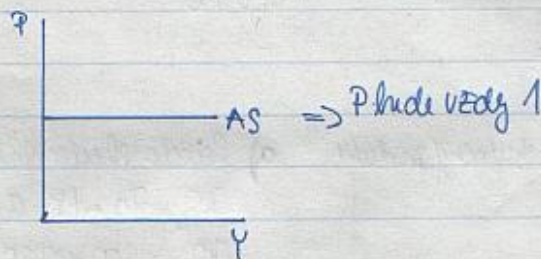 P
AS => P bude vždy 1
Y